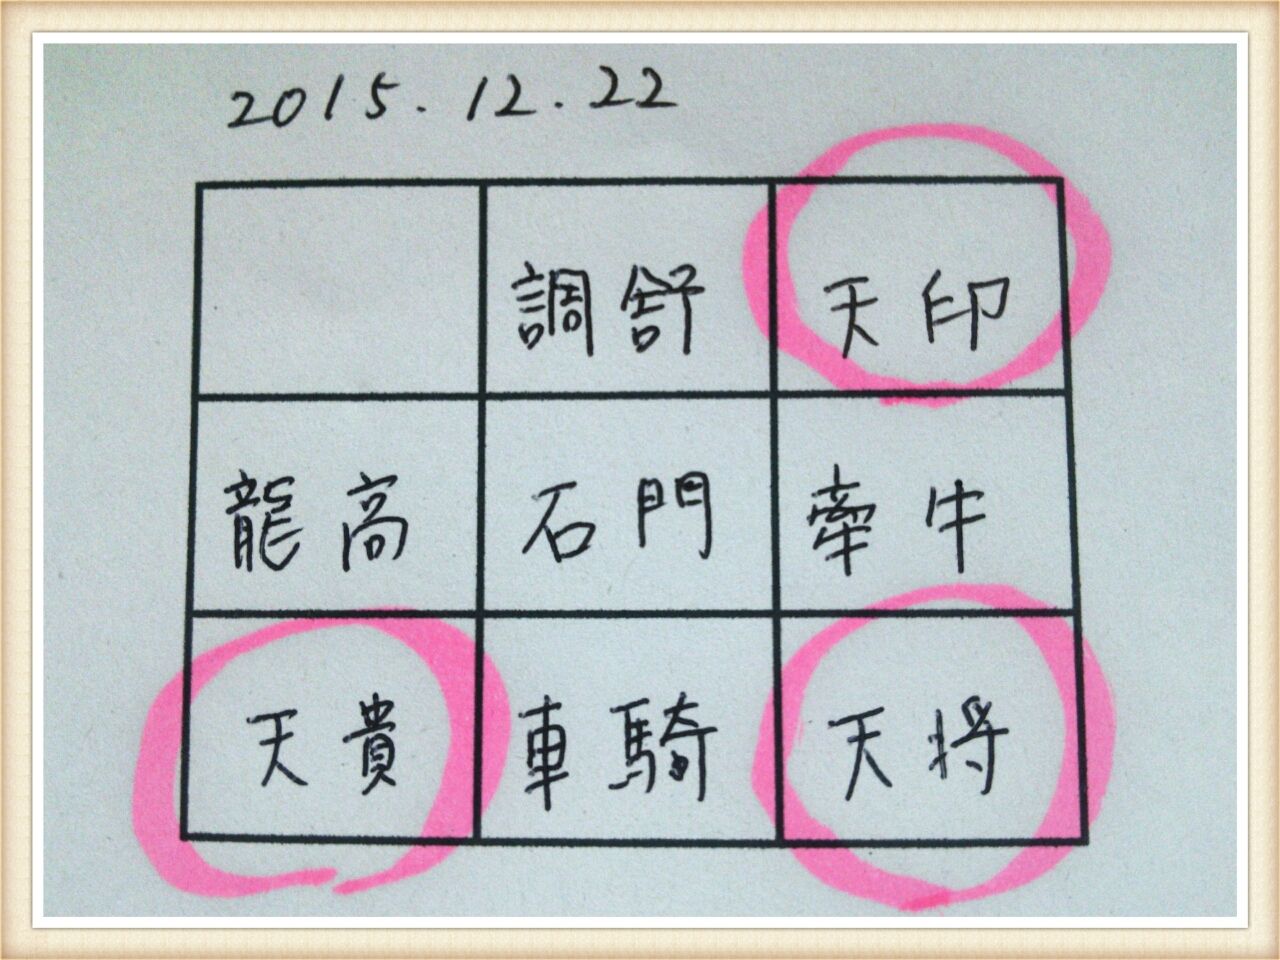 2015.12.22
調舒 天印
龍高 石門 牽牛
天貴 車騎 天将